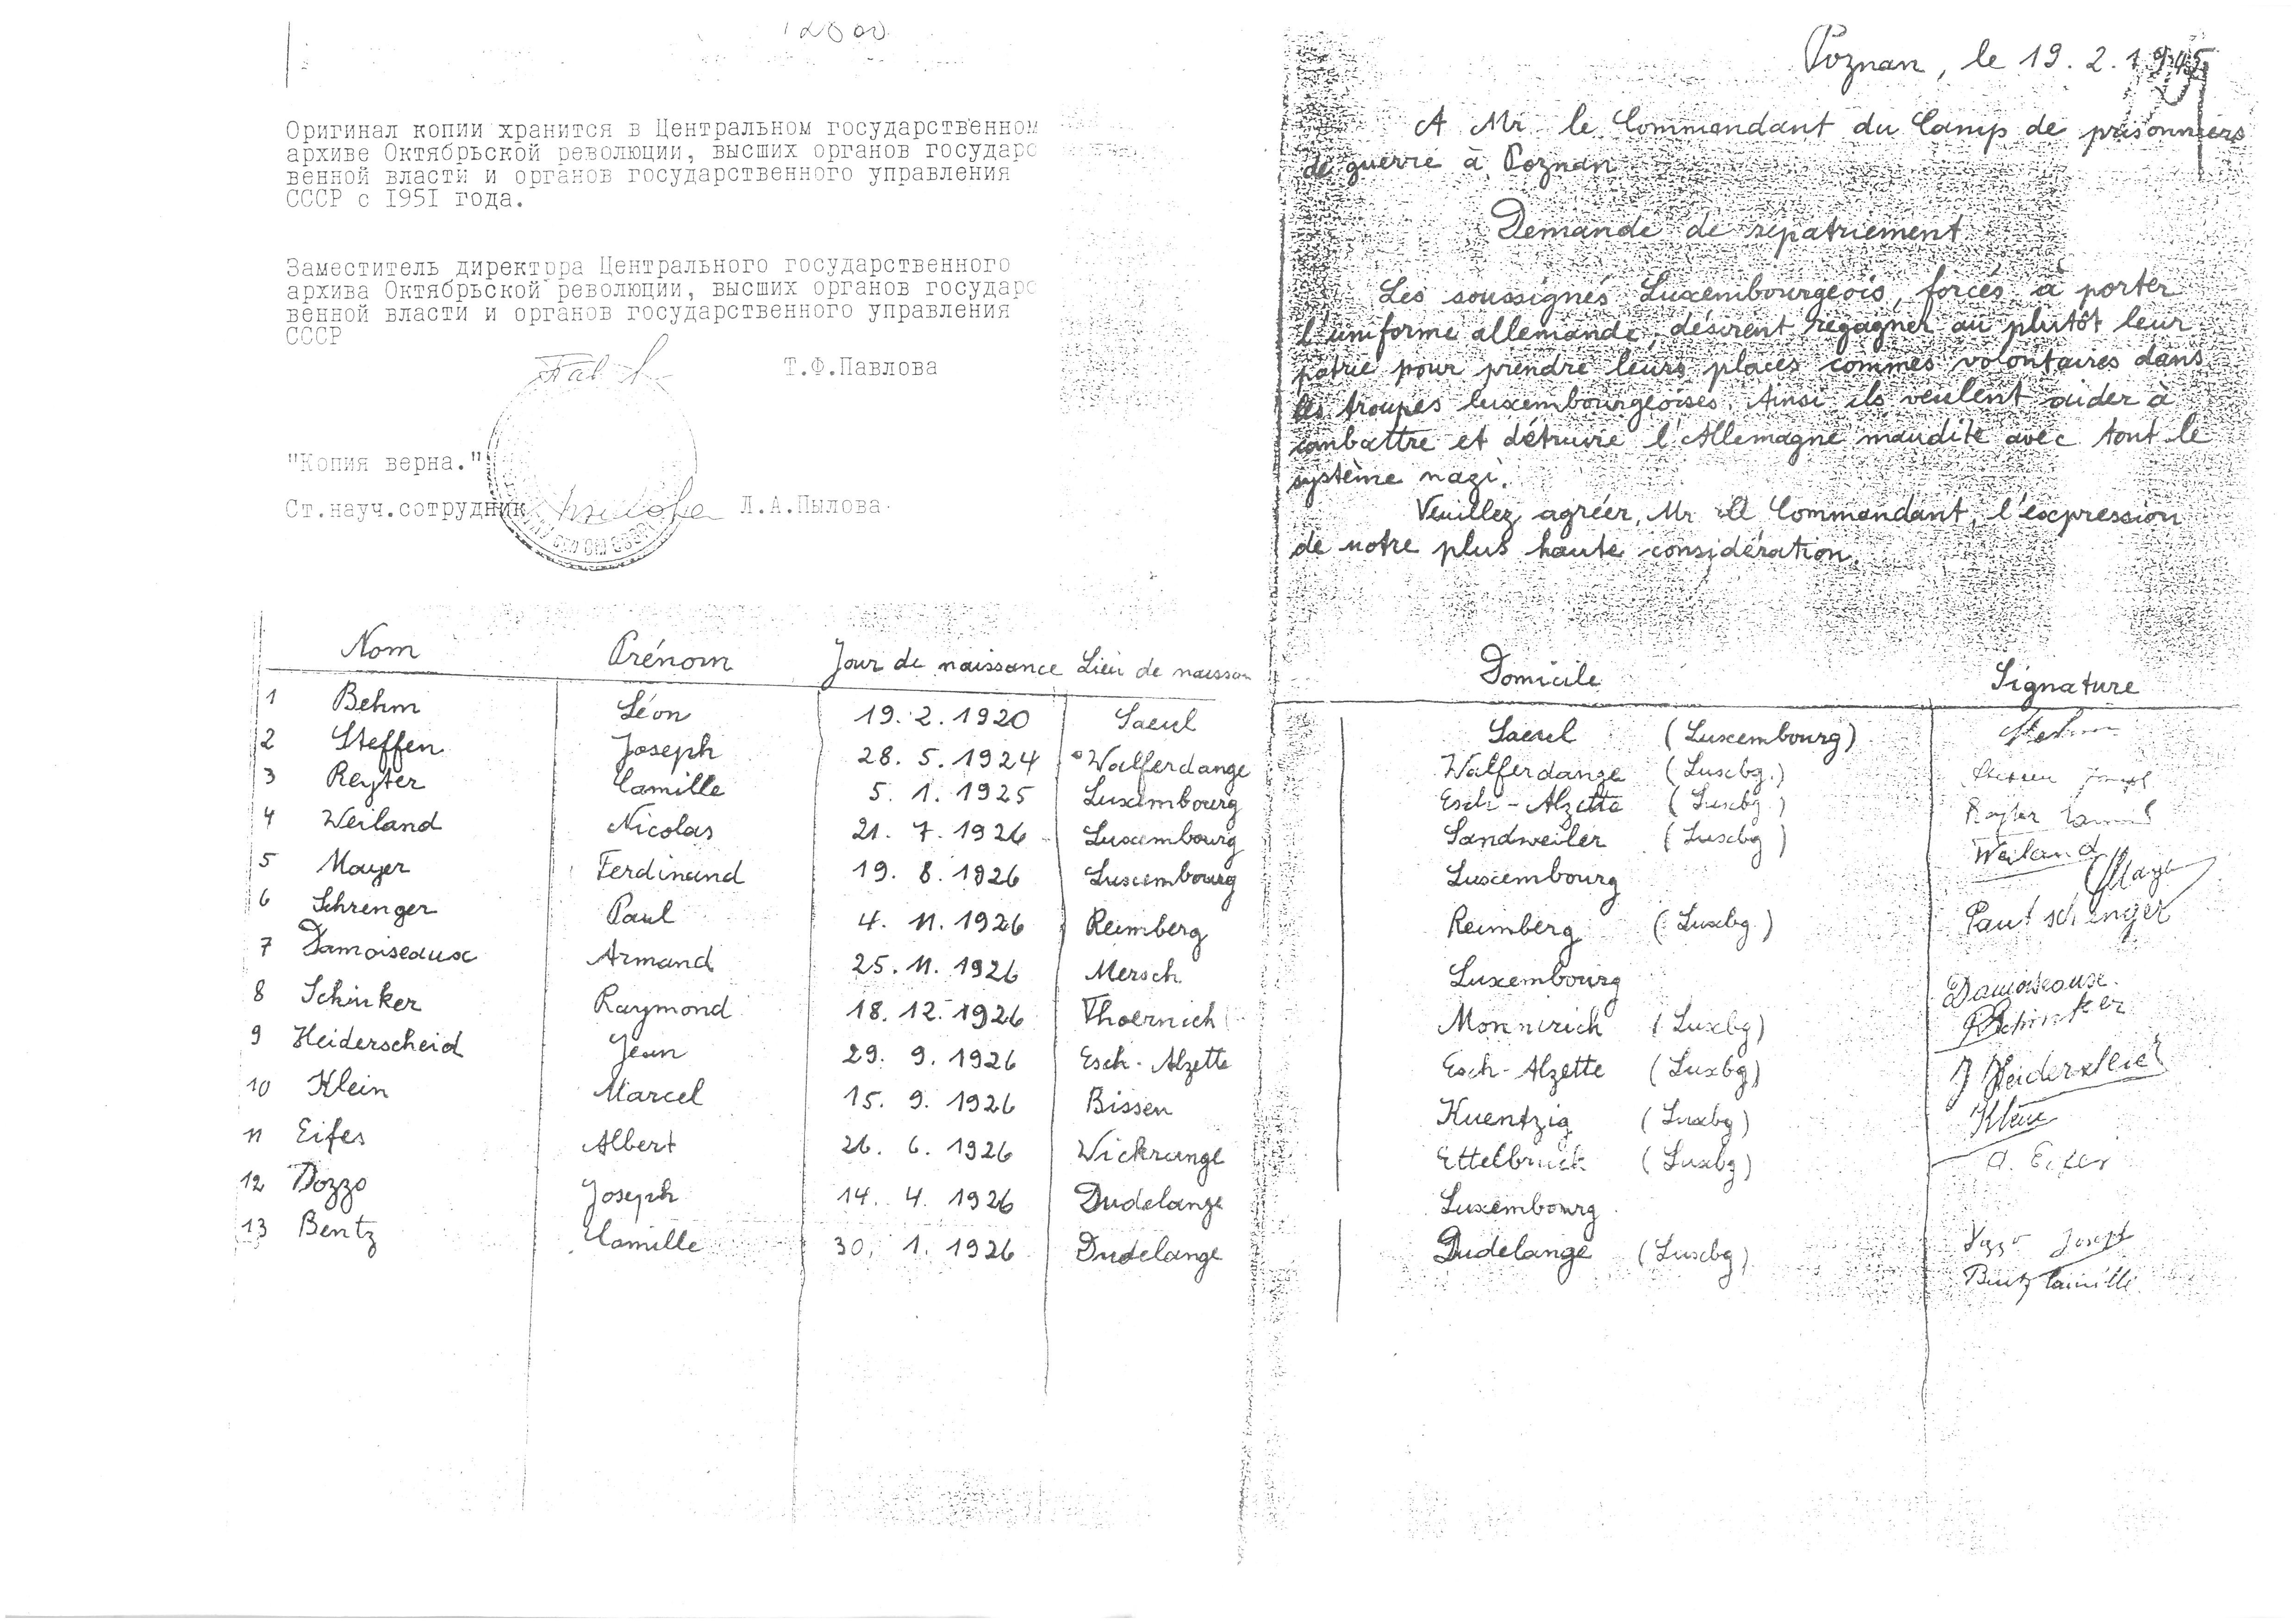 12800
Оригинал копии хранится в Центральном государственном
архиве Октябрьской революции, высших органов государс
венной власти и органов государственного управления
СССР с 1951 года.
Заместитель директора Центрального государственного
архива Октябрьской революции, высших органов государс
венной власти и органов государственного управления
СССР
Т.Ф.Павлова
"Копия верна."
Ст.науч.сотрудник Л.А.Пылова
Poznan, le 19. 2. 1945
A Mr le Commandant du Camp de prisonniers
de guerre à Poznan
Demande de repatriement
Les soussignés Luxembourgeois, forcés à porter
l'uniforme allemande, désirent regagner au plutôt leur
patrie pour prendre leurs places commes volontaires dans
les troupes luxembourgeoises. Ainsi ils veulent aider à
combattre et détruire l'Allemagne maudite avec tout le
système nazi.
Veuillez agréer, Mr le Commandant, l'expression
de notre plus haute considération.
Nom Prénom Jour de naissance Lieu de naissan Domicile Signature
1 Behm Léon 19. 2. 1920 Saeul Saeul (Luxembourg)
2 Steffen Joseph 28. 5. 1924 Walferdange Walferdange (Luxbg.) Steffen Joseph
3 Reyter Camille 5. 1. 1925 Luxembourg Esch-Alzette (Luxbg) Reyter Camille
4 Weiland Nicolas 21. 7. 1926 Luxembourg Sandweiler (Luxbg) Weiland
5 Mayer Ferdinand 19. 8. 1926 Luxembourg Luxembourg Mayer
6 Schrenger Paul 4. 11. 1926 Reimberg Reimberg (Luxbg) Paul Schrenger
7 Damoiseaux Armand 25. 11. 1926 Mersch Luxembourg Damoiseaux
8 Schinker Raymond 18. 12. 1926 Thoernich Monnerich (Luxbg) R Schinker
9 Heiderscheid Jean 29. 9. 1926 Esch-Alzette Esch-Alzette (Luxbg) J Heiderscheid
10 Klein Marcel 15. 9. 1926 Bissen Kuentzig (Luxbg) Klein
11 Eifes Albert 26. 6. 1926 Wickrange Ettelbruck (Luxbg) A. Eifes
12 Dozzo Joseph 14. 4. 1926 Dudelange Luxembourg Joseph
13 Bentz Camille 30. 1. 1926 Dudelange Dudelange (Luxbg) Bentz Camille